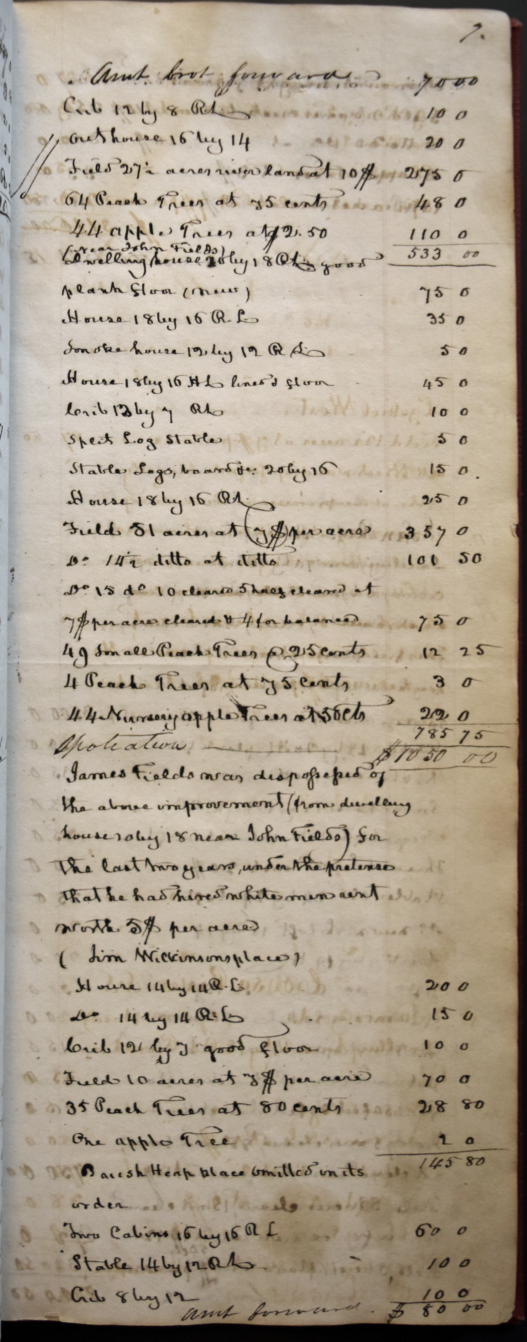 9.
Amt. brot forward 7000
Crib 12 by 8 RL 10 0
outhouse 16 by 14 20 0
Field 27½ acres river land at 10$ 275 0
64 Peach Trees at 75 cents 48 0
44 apple Trees at $2.50 110 0
533 00
(near John Fields)
Dwelling house 20 by 18 RL good
plank floor (new) 75 0
House 18 by 16 R L 35 0
Smoke house 12 by 12 R L 5 0
House 18 by 16 H L lined floor 45 0
Crib 13 by 7 RL 10 0
Split Log Stable 5 0
Stable Logs, board &c. 20 by 16 15 0
House 18 by 16 RL 25 0
Field 51 acres at 7$ per acre 357 0
Do 14½ ditto at ditto 101 50
Do 15 do 10 cleared 5 half cleared at
7$ per acre cleared & 4 for balance 75 0
49 Small Peach Trees @ 25 cents 12 25
4 Peach Trees at 75 cents 3 0
44 Nursery apple Trees at 50 Cts 22 0
785 75
Spoliation $1050 00
James Fields was dispossessed of
the above improvement (from dwelling
house 20 by 18 near John Fields) for
the last two years, under the pretense
that he had hired white men rent
worth 5$ per acre
( Jim Wickinsons place)
House 14 by 14 R.L. 20 0
Do 14 by 14 R.L 15 0
Crib 12 by 7 good floor 10 0
Field 10 acres at 7$ per acre 70 0
35 Peach Trees at 80 cents 28 80
One apple Tree 2 0
145 80
place omitted in its
order
Two Cabins 16 by 16 R L 60 0
Stable 14 by 12 R L 10 0
Crib 8 by 12 10 0
amt forward. $ 80 00